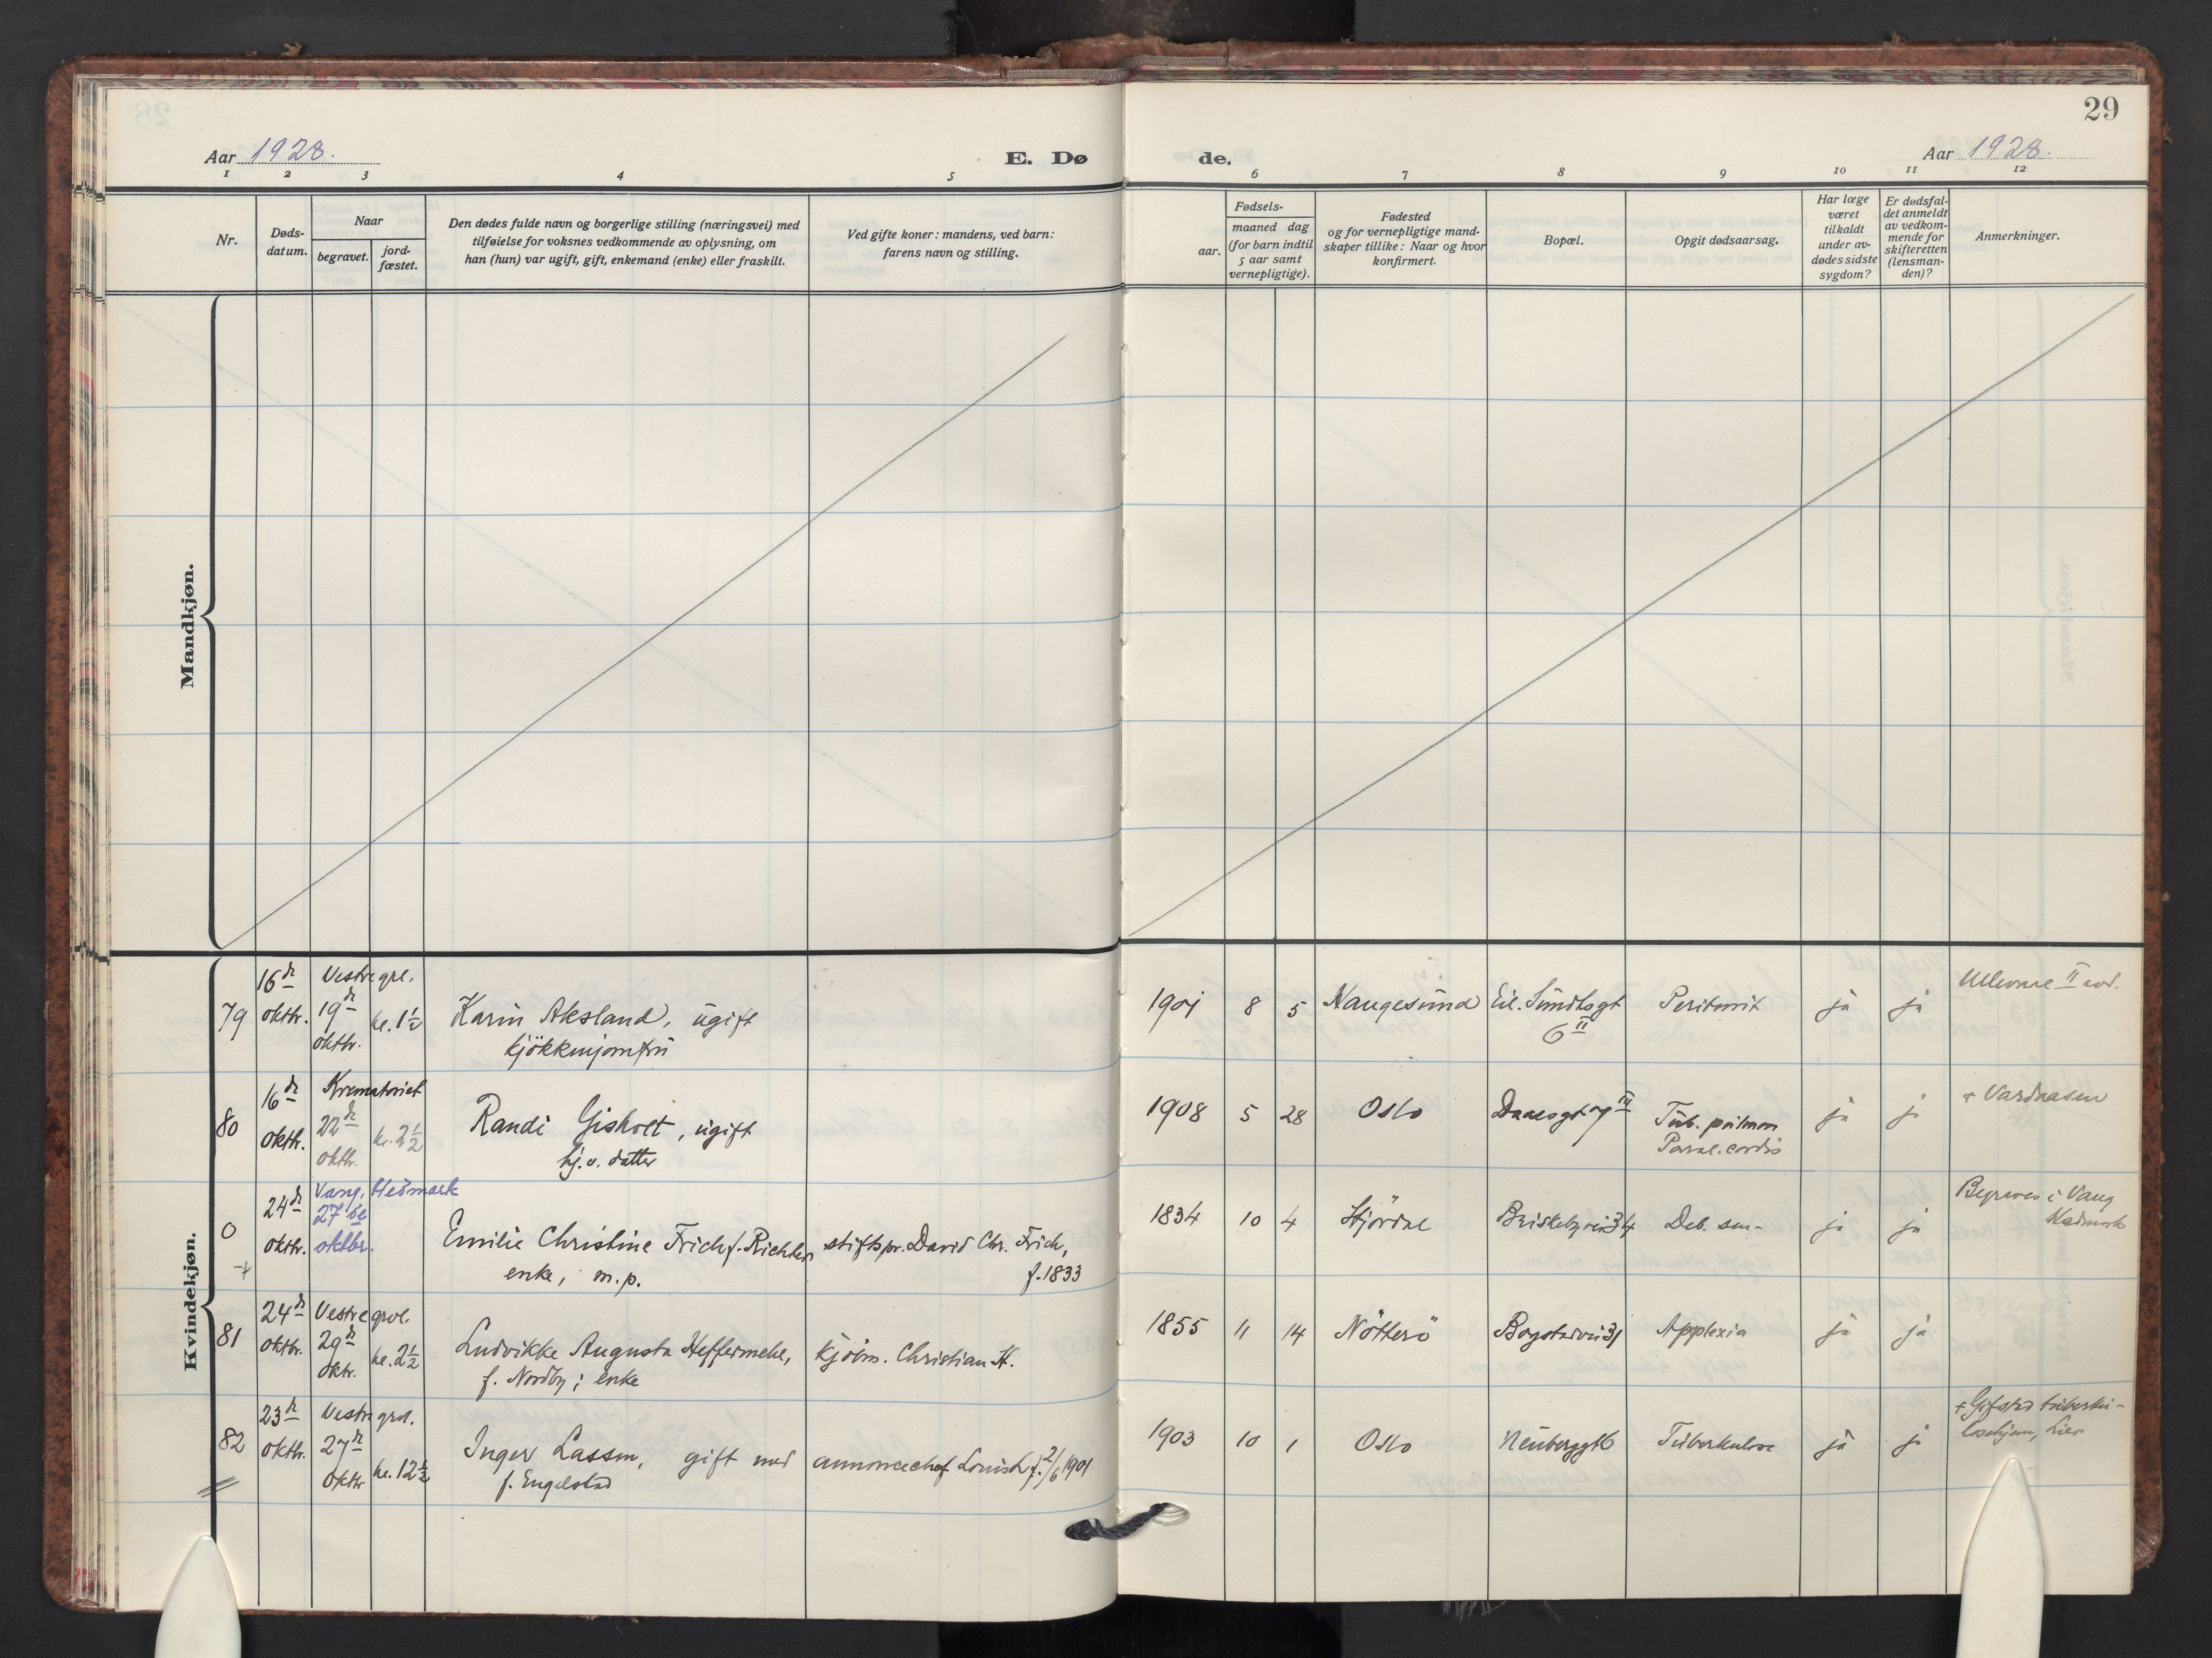 29
Aar 1928.
E. Dø
de.
Aar 1928.
1 2 3 4 5 6 7 8 9 10 11 12
Nr.
Døds-
datum.
Naar
begravet.
jord-
fæstet.
Den dødes fulde navn og borgerlige stilling (næringsvei) med
tilføielse for voksnes vedkommende av oplysning, om
han (hun) var ugift, gift, enkemand (enke) eller fraskilt.
Ved gifte koner: mandens, ved barn:
farens navn og stilling.
Fødsels-
aar.
maaned dag
(for barn indtil
5 aar samt
vernepligtige).
Fødested
og for vernepligtige mand-
skaper tillike: Naar og hvor
konfirmert.
Bopæl.
Opgit dødsaarsag.
Har læge
været
tilkaldt
under av-
dødes sidste
sygdom?
Er dødsfal-
det anmeldt
av vedkom-
mende for
skifteretten
(lensman-
den)?
Anmerkninger.
Mandkjøn.
Kvindekjøn.
79
16de
oktbr.
Vestre grl.
19de
oktbr.
kl. 1½
Karin Aksland, ugift
kjökkenjomfru
8 5
Haugesund
Eil. Sundtsgt
6 II
Peritonit
ja
ja
Ullevaal II avd.
80
16de
oktbr.
Krematoriet
22de
oktbr.
kl. 2½
Randi Gisholt, ugift
hj.v. datter
1908 5 28
Oslo
Daaesgt 7 III
Tub. pulmon
Paral. cordis
ja
ja
+ Vardaasen
0
+
24de
oktbr.
Vang, Hedmark
27de
oktbr.
Emilie Christine Frich f. Richter,
enke, m.p.
stiftspr. David Chr. Frich,
f. 1833
1834 10 4
Stjördal
Briskebyvei 34
Deb. sen-
ja
ja
Begraves i Vang
Hedmark
81
24de
oktbr.
Vestre grvl.
29de
oktr.
kl. 2½
Ludvikke Augusta Heffermehl,
f. Nordby; enke
kjöbm. Christian H.
1855 11 14
Nötterö
Bogstadvei 31
Applexia
ja
ja
82
23de
oktbr.
Vestre grvl.
27de
oktbr
kl. 12½
Inger Lassen, gift med
f. Engelstad
annoncechef Louis L. f. 2/6 1901
1903 10 1
Oslo
Neuberggt 6
Tuberkulose
ja
ja
+ Gifstad tuberku-
losehjem, Lier